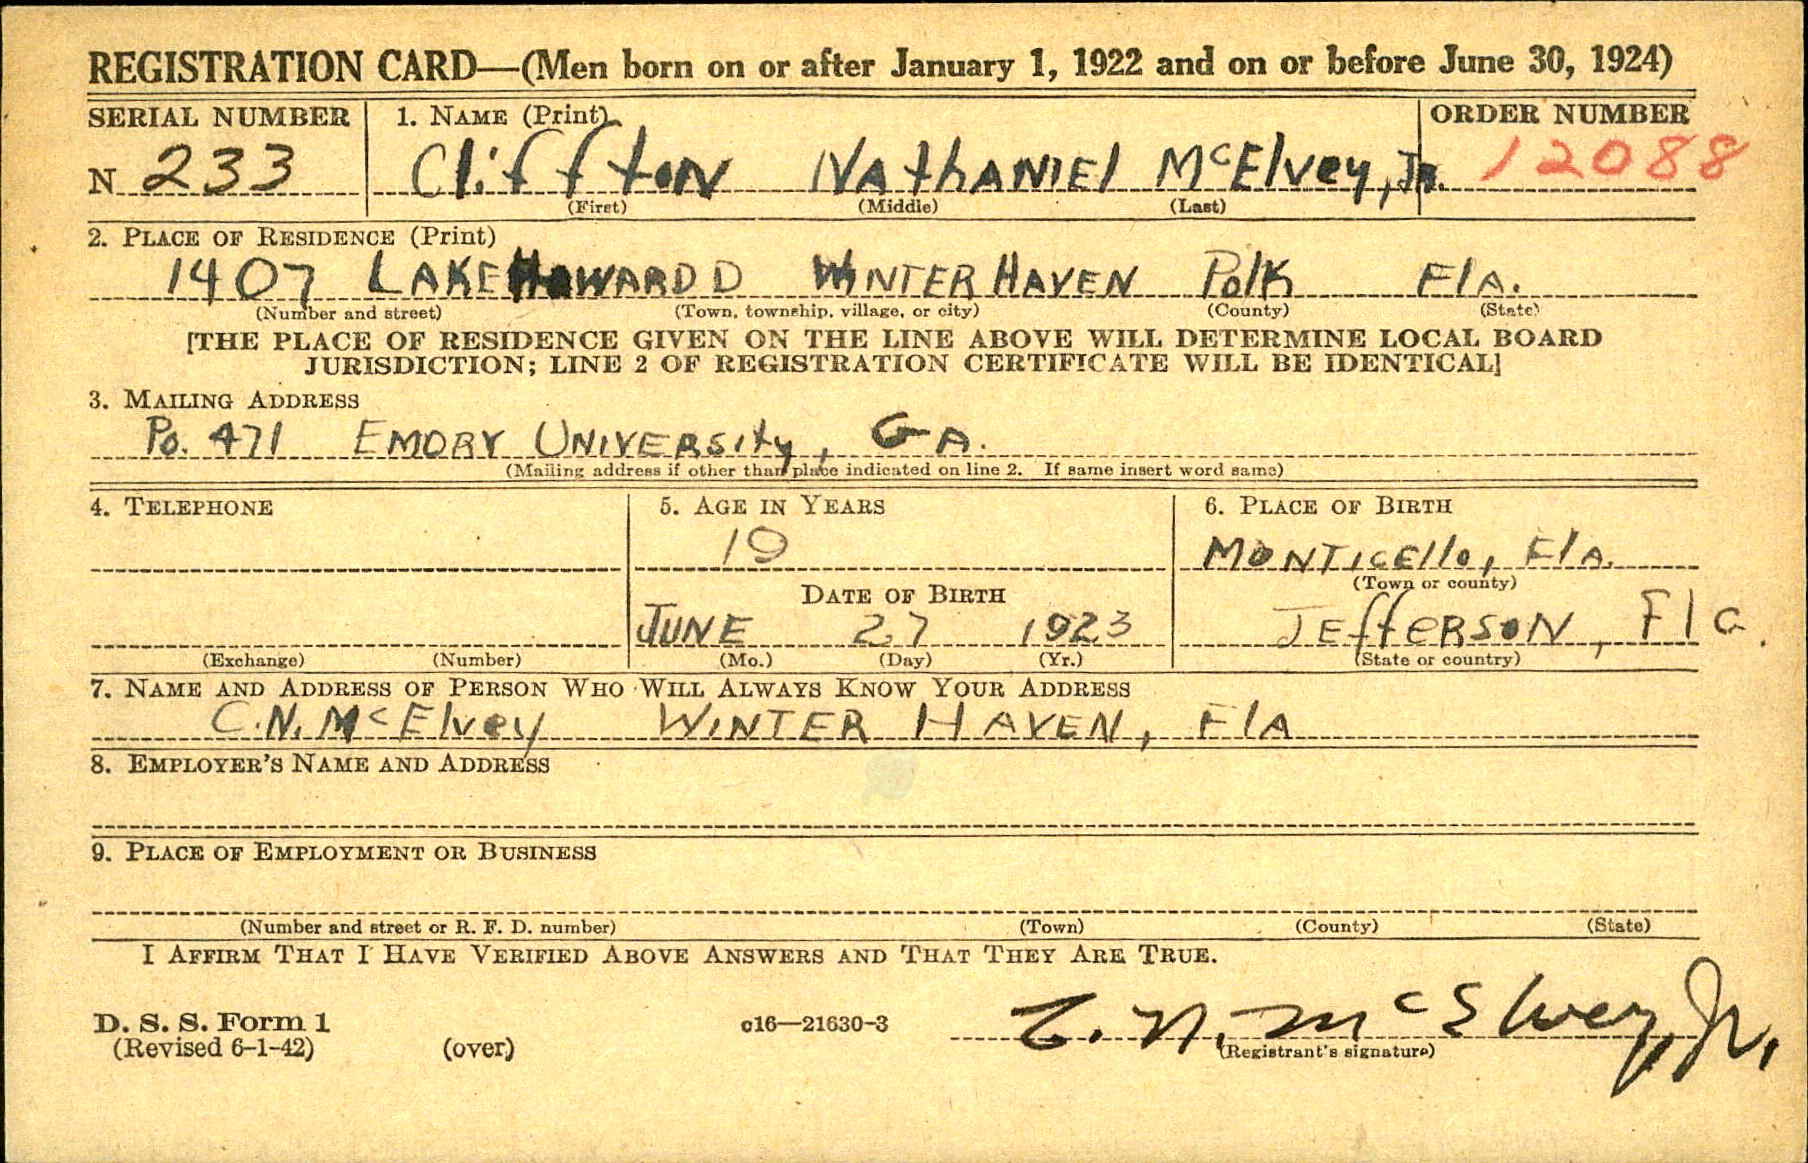 REGISTRATION CARD—(Men born on or after January 1, 1922 and on or before June 30, 1924)
SERIAL NUMBER 1. NAME (Print) ORDER NUMBER
N 233 Cliffton Nathaniel McElvey, Jr. 12088
(First) (Middle) (Last)
2. PLACE OF RESIDENCE (Print)
1407 LAKE HOWARD D WINTER HAVEN Polk FlA.
(Number and street) (Town, township, village, or city) (County) (State)
[THE PLACE OF RESIDENCE GIVEN ON THE LINE ABOVE WILL DETERMINE LOCAL BOARD
JURISDICTION; LINE 2 OF REGISTRATION CERTIFICATE WILL BE IDENTICAL]
3. MAILING ADDRESS
Po. 471 EMORY UNIVERSity, GA.
(Mailing address if other than place indicated on line 2. If same insert word same)
4. TELEPHONE 5. AGE IN YEARS 6. PLACE OF BIRTH
19 MONTICEllo, FlA.
(Town or county)
DATE OF BIRTH
JUNE 27 1923 JEffERSON, Fla.
(Exchange) (Number) (Mo.) (Day) (Yr.) (State or country)
7. NAME AND ADDRESS OF PERSON WHO WILL ALWAYS KNOW YOUR ADDRESS
C.N. McElvey WINTER HAVEN, FlA
8. EMPLOYER'S NAME AND ADDRESS
9. PLACE OF EMPLOYMENT OR BUSINESS
(Number and street or R. F. D. number) (Town) (County) (State)
I AFFIRM THAT I HAVE VERIFIED ABOVE ANSWERS AND THAT THEY ARE TRUE.
D. S. S. Form 1
(Revised 6-1-42) (over) c16—21630-3 C. N. McElvey, Jr.
(Registrant's signature)